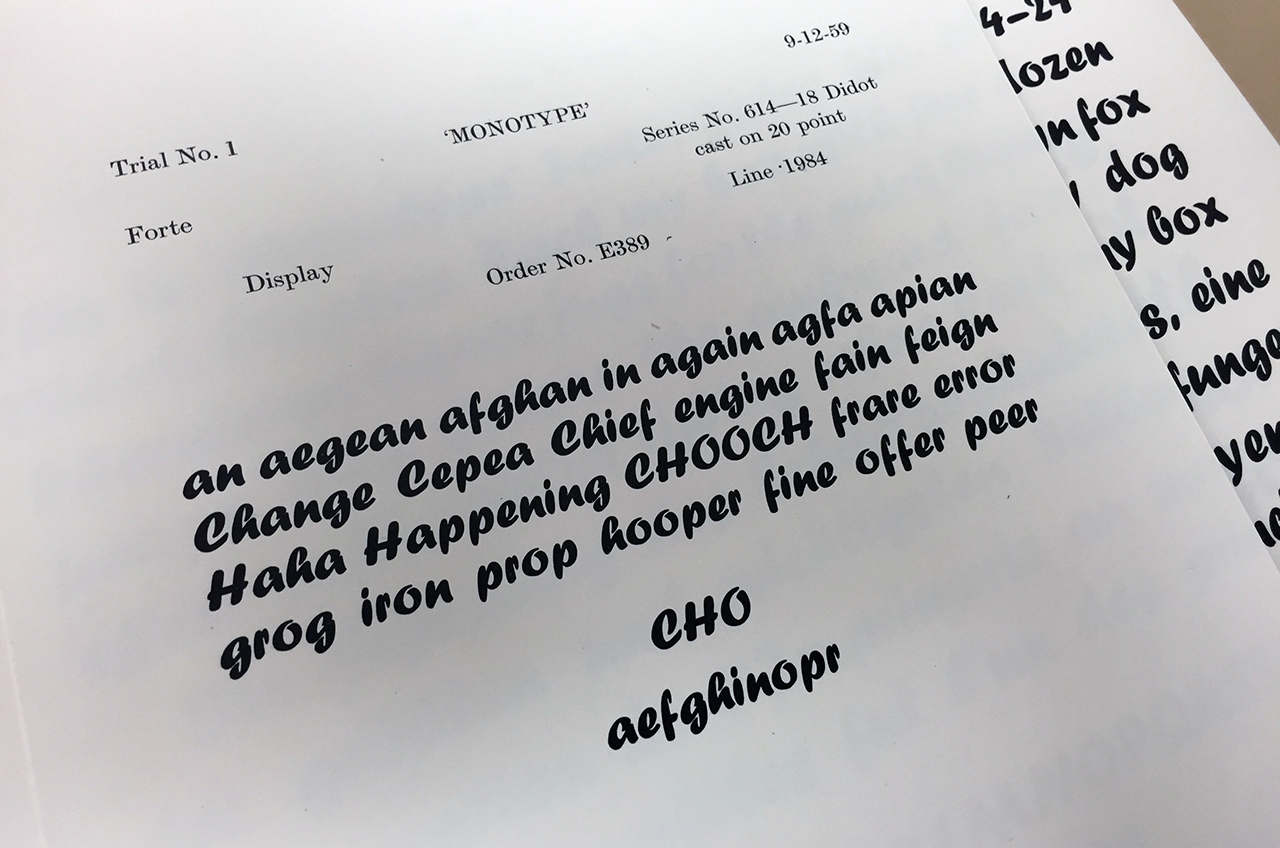 9-12-59
Trial No. 1
'MONOTYPE'
Series No. 614—18 Didot
cast on 20 point
Line ·1984
Forte
Display
Order No. E389
an aegean afghan in again agfa apian
Change Cepea Chief engine fain feign
Haha Happening CHOOCH frare error
grog iron prop hooper fine offer peer
CHO
aefghinopr
fox
dog
box
eine